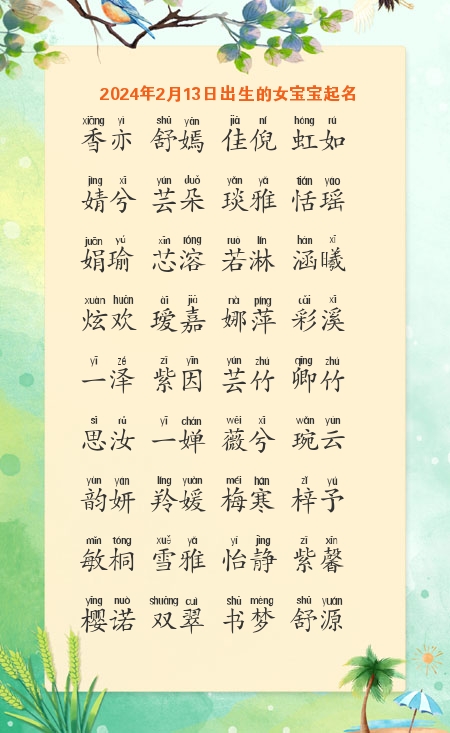 2024年2月13日出生的女宝宝起名
xiāng yì shū yān jiā ní hóng rú
香亦 舒嫣 佳倪 虹如
jìng xī yún duǒ yǎn yǎ tián yáo
婧兮 芸朵 琰雅 恬瑶
juān yú xīn róng ruò lín hán xī
娟瑜 芯溶 若淋 涵曦
xuàn huān ài jiā nà píng cǎi xī
炫欢 瑷嘉 娜萍 彩溪
yī zé zǐ yīn yún zhú qīng zhú
一泽 紫因 芸竹 卿竹
sī rǔ yī chán wēi xī wǎn yún
思汝 一婵 薇兮 琬云
yùn yán líng yuàn méi hán zǐ yǔ
韵妍 羚媛 梅寒 梓予
mǐn tóng xuě yǎ yí jìng zǐ xīn
敏桐 雪雅 怡静 紫馨
yīng nuò shuāng cuì shū mèng shū yuán
樱诺 双翠 书梦 舒源